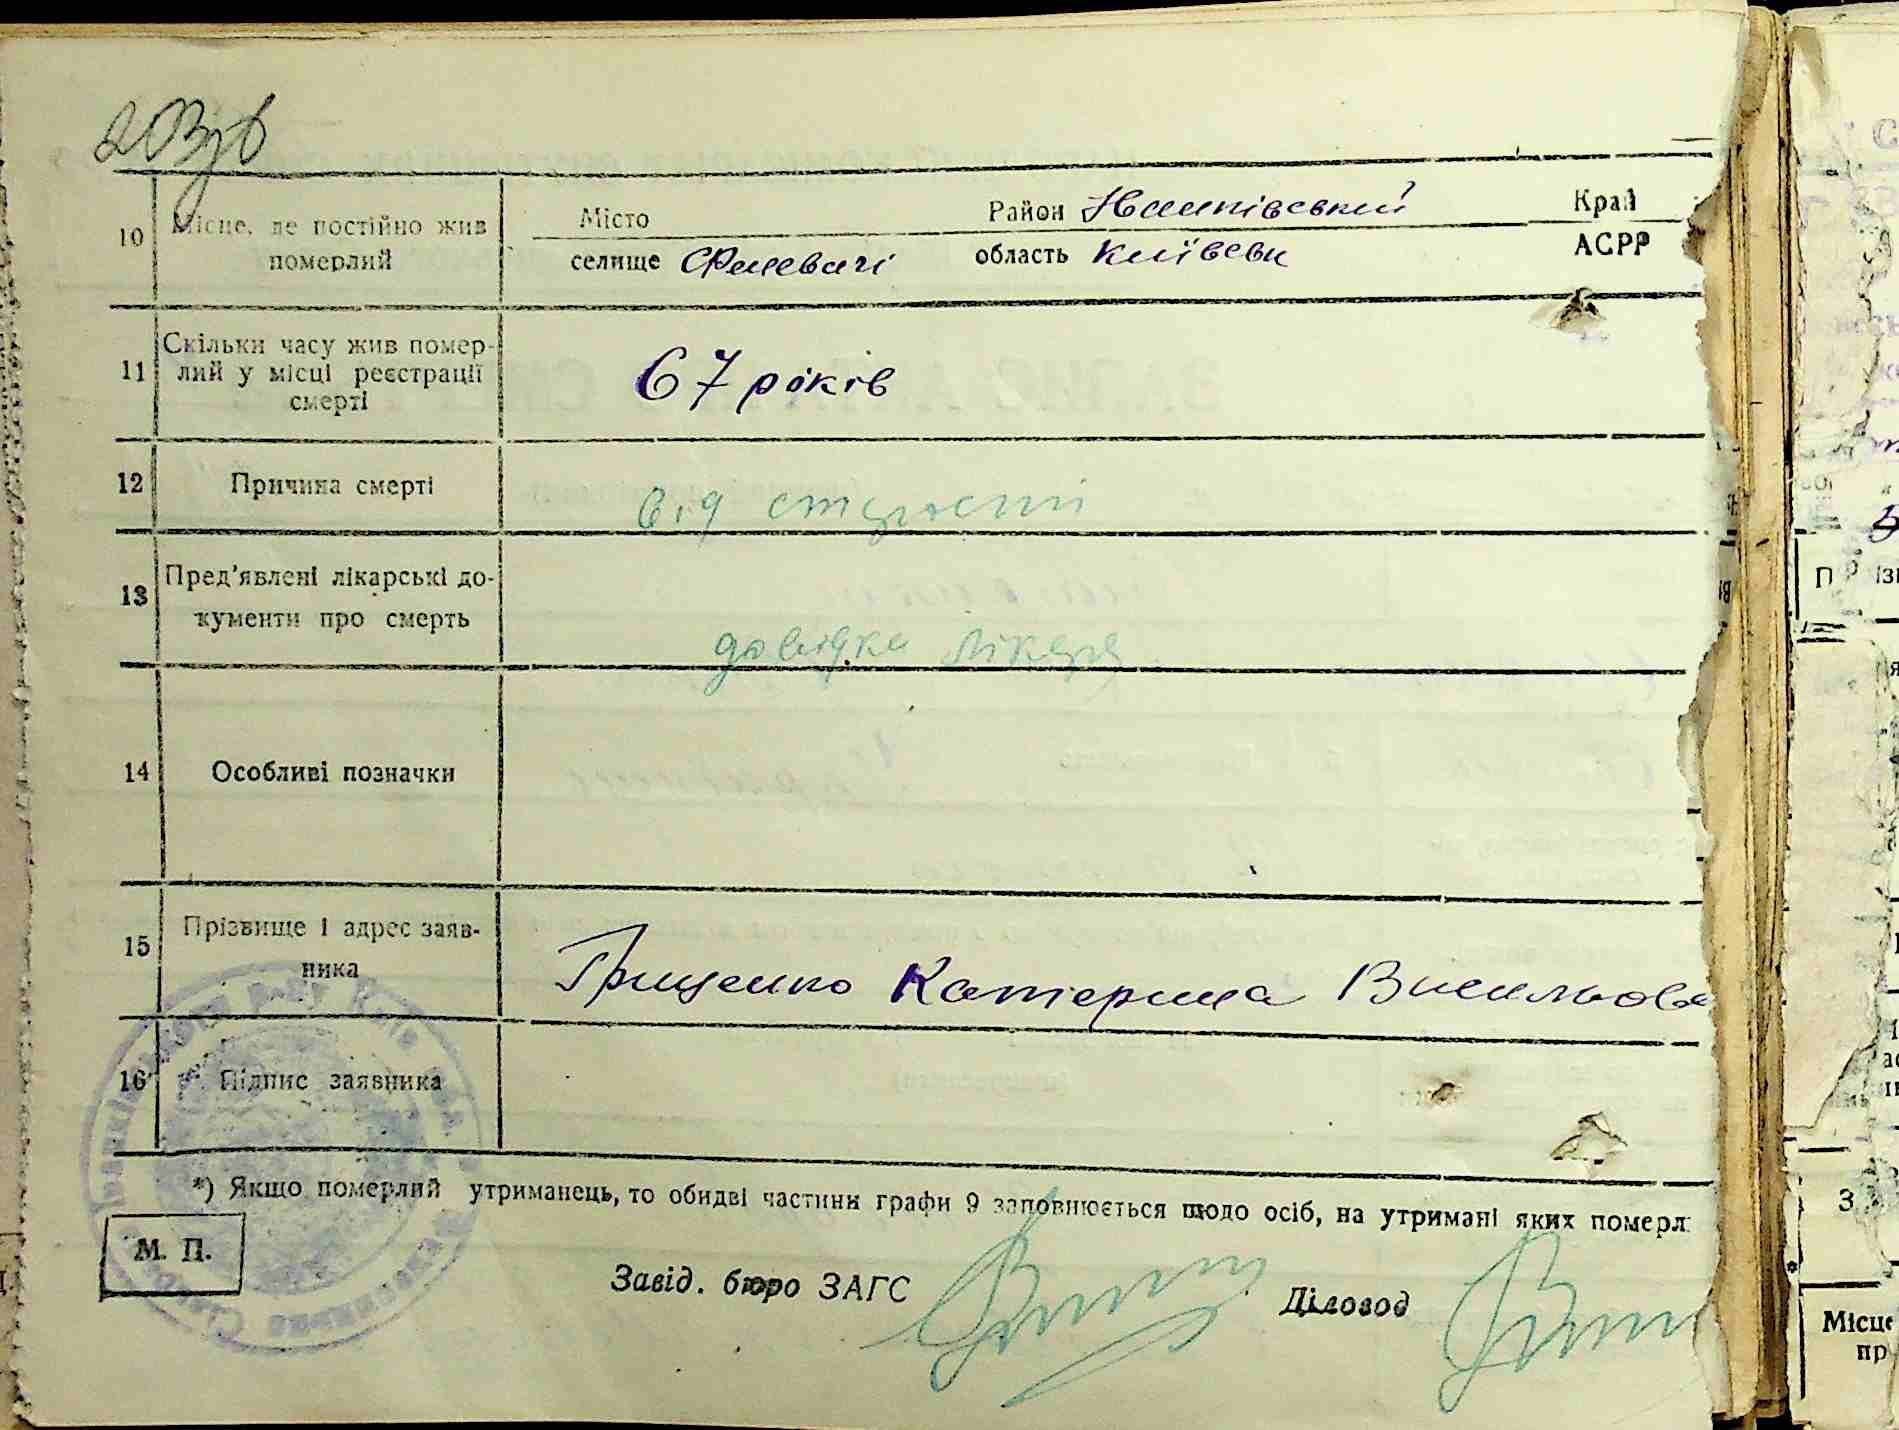 10 Місце, де постійно жив померлий
Місто Район Іванківський Край
селище Феневичі область Київськ АСРР
11 Скільки часу жив помер-
лий у місці реєстрації
смерті
67 років
12 Причина смерті
від старости
13 Пред'явлені лікарські до-
кументи про смерть
довідка лікаря
14 Особливі позначки
15 Прізвище і адрес заяв-
ника
Грищенко Катерина Васильов
16 Підпис заявника
*) Якщо померлий утриманець, то обидві частини графи 9 заповнюється щодо осіб, на утримані яких померл
М. П.
Завід. бюро ЗАГС
Діловод
Місце
пр